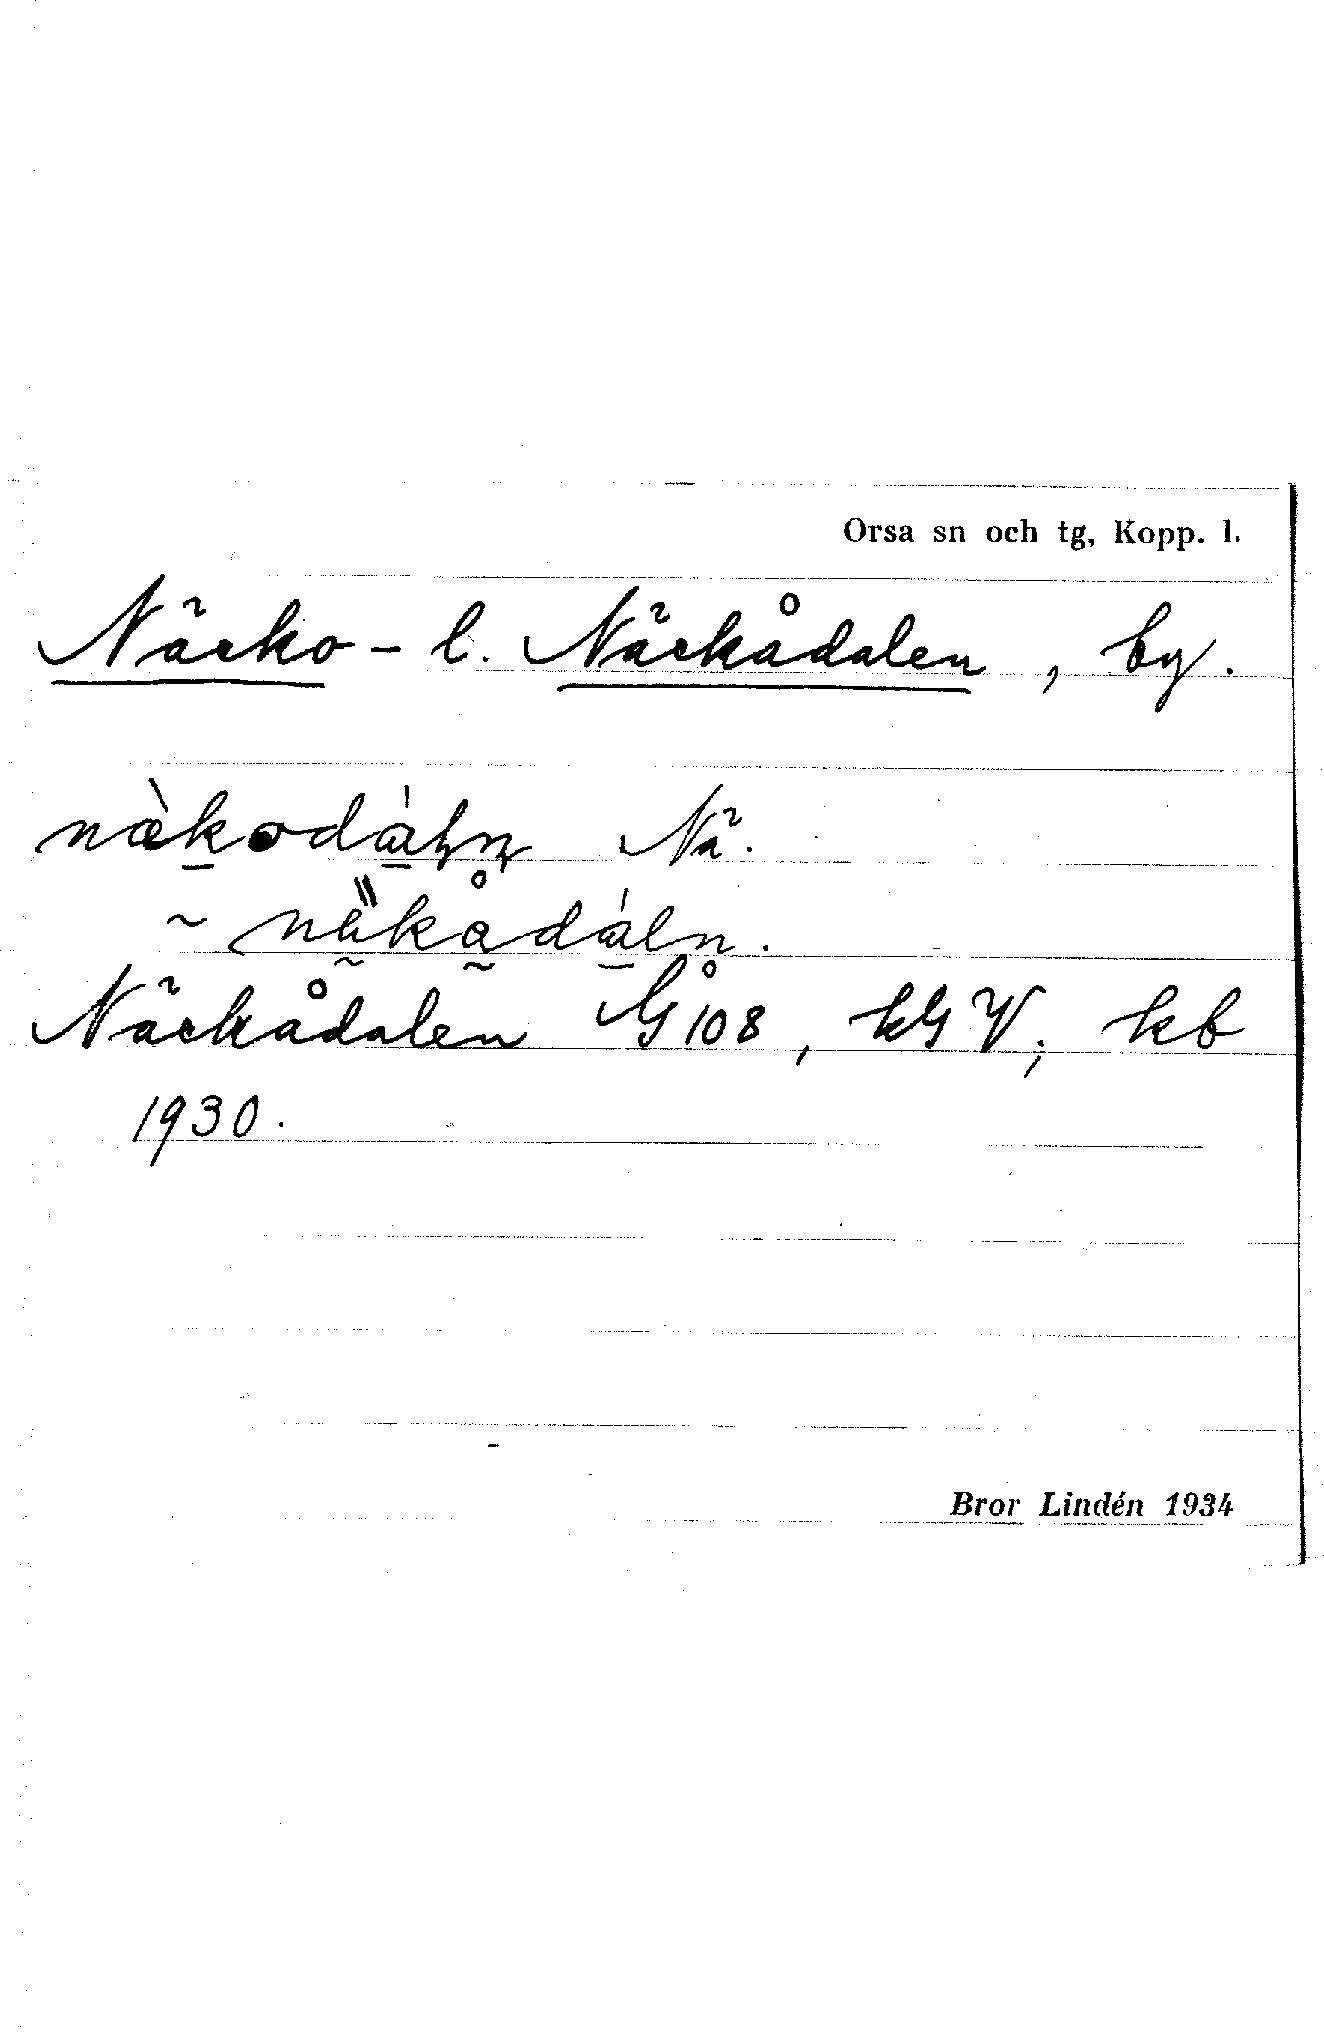 Orsa sn och tg, Kopp. l.
Näcko- l. Näckådalen, by.
nækodaln Nä.
~ näkådaln.
Näckådalen G108, kG V; kb
1930.
Bror Lindén 1934